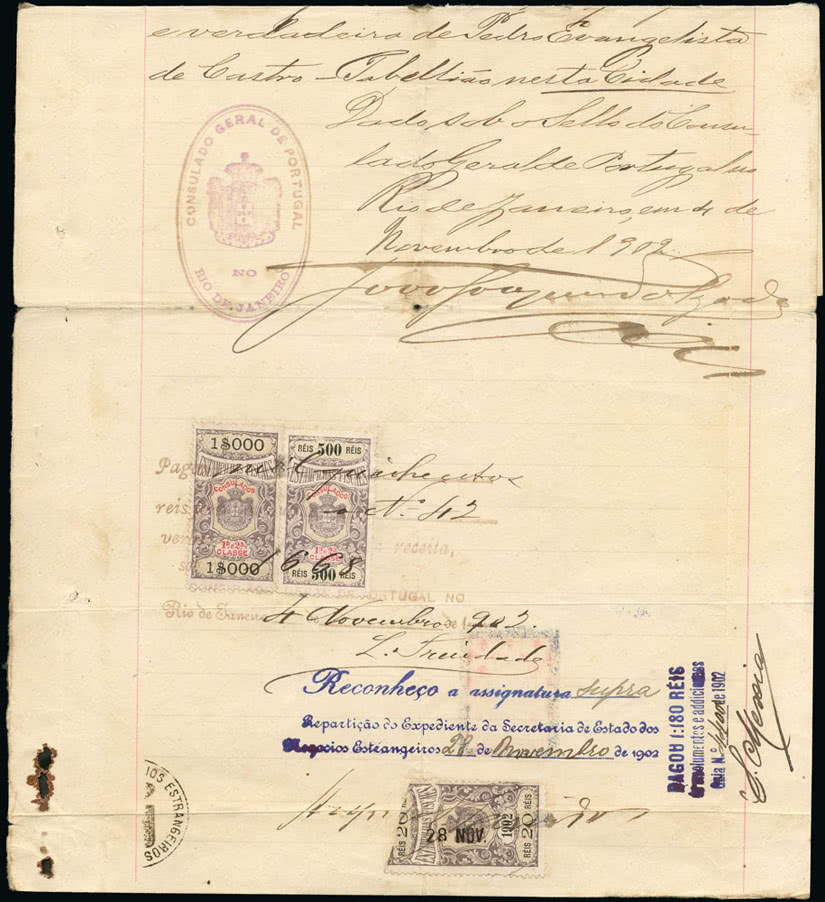 e verdadeira de Pedro Evangelista
de Castro - Tabellião nesta Cidade
Dado sob o Sello do Consu-
lado Geral de Portugal no
Rio de Janeiro, em 4 de
Novembro de 1902.
CONSULADO GERAL DE PORTUGAL
NO
RIO DE JANEIRO
1$000
ESTAMPILHAS FISCAES
CONSULADOS
1ª e 2ª
CLASSE
1$000
RÉIS 500 RÉIS
ESTAMPILHAS FISCAES
CONSULADOS
1ª e 2ª
CLASSE
RÉIS 500 RÉIS
Pagou mil quinhentos
reis
Nº 42
receita,
1668
CONSULADO DE PORTUGAL NO
Rio de Janeiro 4 Novembro de 1902.
L. Trindade
Reconheço a assignatura supra
Repartição do Expediente da Secretaria de Estado dos
Negocios Estrangeiros 28 de Novembro de 1902
PAGOU 1:180 RÉIS
Emolumentos e addicionaes
Guia N.º de 1902
IOS ESTRANGEIROS
RÉIS 20
28 NOV.
1902
RÉIS 20 RÉIS